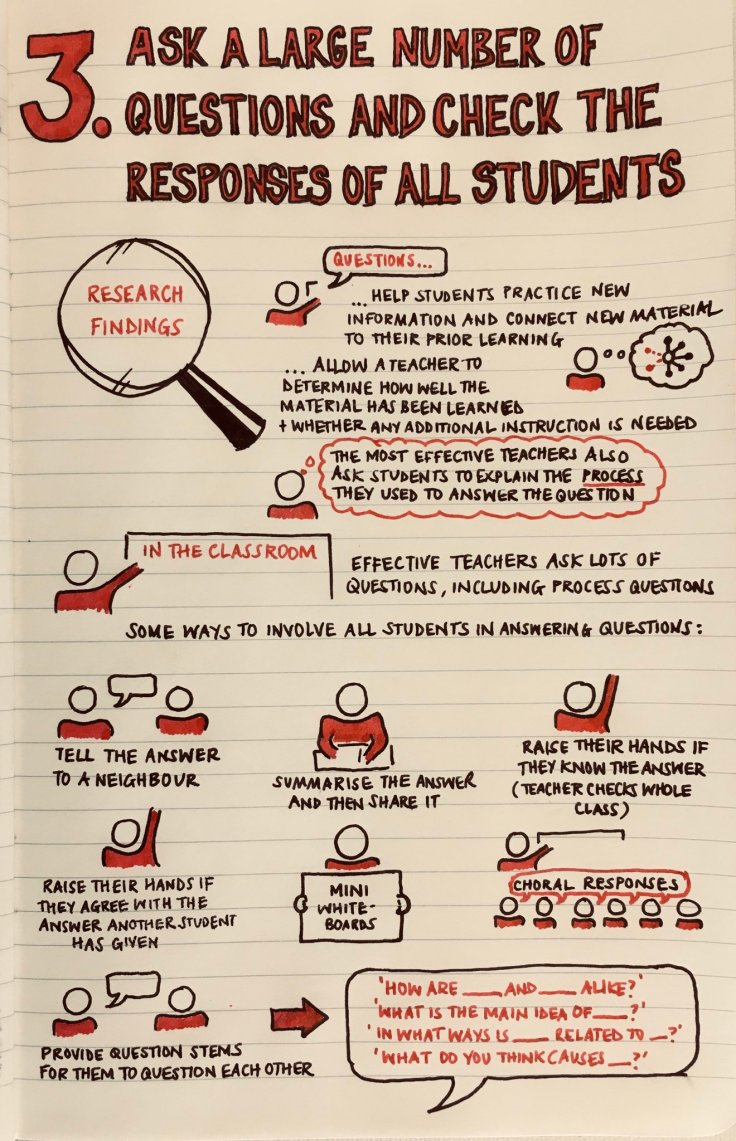 3. ASK A LARGE NUMBER OF
QUESTIONS AND CHECK THE
RESPONSES OF ALL STUDENTS
RESEARCH
FINDINGS
QUESTIONS...
... HELP STUDENTS PRACTICE NEW
INFORMATION AND CONNECT NEW MATERIAL
TO THEIR PRIOR LEARNING
... ALLOW A TEACHER TO
DETERMINE HOW WELL THE
MATERIAL HAS BEEN LEARNED
+ WHETHER ANY ADDITIONAL INSTRUCTION IS NEEDED
THE MOST EFFECTIVE TEACHERS ALSO
ASK STUDENTS TO EXPLAIN THE PROCESS
THEY USED TO ANSWER THE QUESTION
IN THE CLASSROOM
EFFECTIVE TEACHERS ASK LOTS OF
QUESTIONS, INCLUDING PROCESS QUESTIONS
SOME WAYS TO INVOLVE ALL STUDENTS IN ANSWERING QUESTIONS:
TELL THE ANSWER
TO A NEIGHBOUR
SUMMARISE THE ANSWER
AND THEN SHARE IT
RAISE THEIR HANDS IF
THEY KNOW THE ANSWER
(TEACHER CHECKS WHOLE
CLASS)
RAISE THEIR HANDS IF
THEY AGREE WITH THE
ANSWER ANOTHER STUDENT
HAS GIVEN
MINI
WHITE-
BOARDS
CHORAL RESPONSES
PROVIDE QUESTION STEMS
FOR THEM TO QUESTION EACH OTHER
'HOW ARE ___ AND ___ ALIKE?'
'WHAT IS THE MAIN IDEA OF ___?'
'IN WHAT WAYS IS ___ RELATED TO _?'
'WHAT DO YOU THINK CAUSES __?'